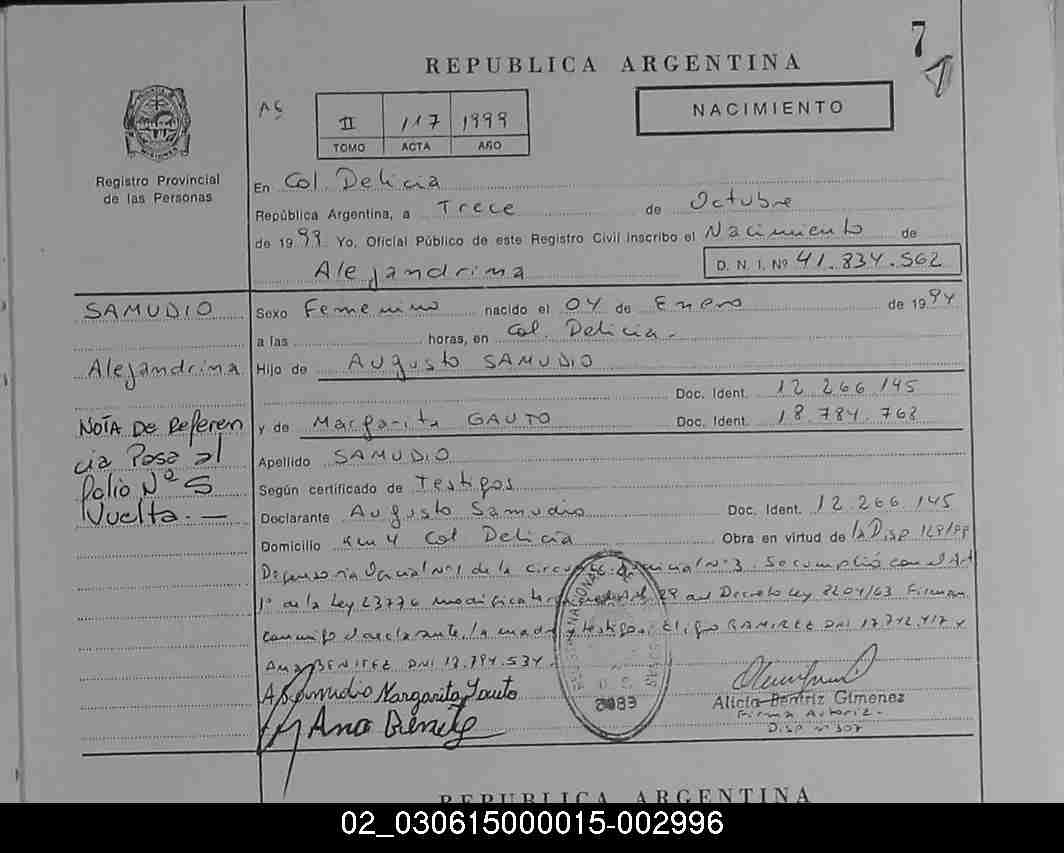 7
REPUBLICA ARGENTINA
NACIMIENTO
II 117 1999
TOMO ACTA AÑO
Registro Provincial
de las Personas
En Col. Delicia
República Argentina, a Trece de Octubre
de 1999 Yo, Oficial Público de este Registro Civil inscribo el Nacimiento de
Alejandrina D. N. I. Nº 41.834.562
SAMUDIO
Alejandrina
NOTA DE Referen
cia Pasa al
folio Nº 5
Vuelta. —
Sexo Femenino nacido el 04 de Enero de 1994
a las horas, en Col. Delicia.
Hijo de Augusto SAMUDIO
Doc. Ident. 12.266.145
y de Margarita GAUTO Doc. Ident. 18.784.762
Apellido SAMUDIO
Según certificado de Testigos
Declarante Augusto Samudio Doc. Ident. 12.266.145
Domicilio Km 4 Col Delicia Obra en virtud de la Disp 129/99
Defensoria Oficial Nº 1 de la Circunsc. Judicial Nº 3. Se cumplió con el Art
1º de la Ley 23776 modificatoria del Art 29 del Decreto Ley 8204/63 Firman
conmigo el declarante, la madre y testigos: Eligio RAMIREZ DNI 17.742.417 y
Ana BENITEZ DNI 18.794.534
A Samudio Margarita Gauto
Ana Benitez
2083
Alicia Beatriz Gimenez
Firma Autoriz.-
Disp nº 307
REPUBLICA ARGENTINA
02_030615000015-002996